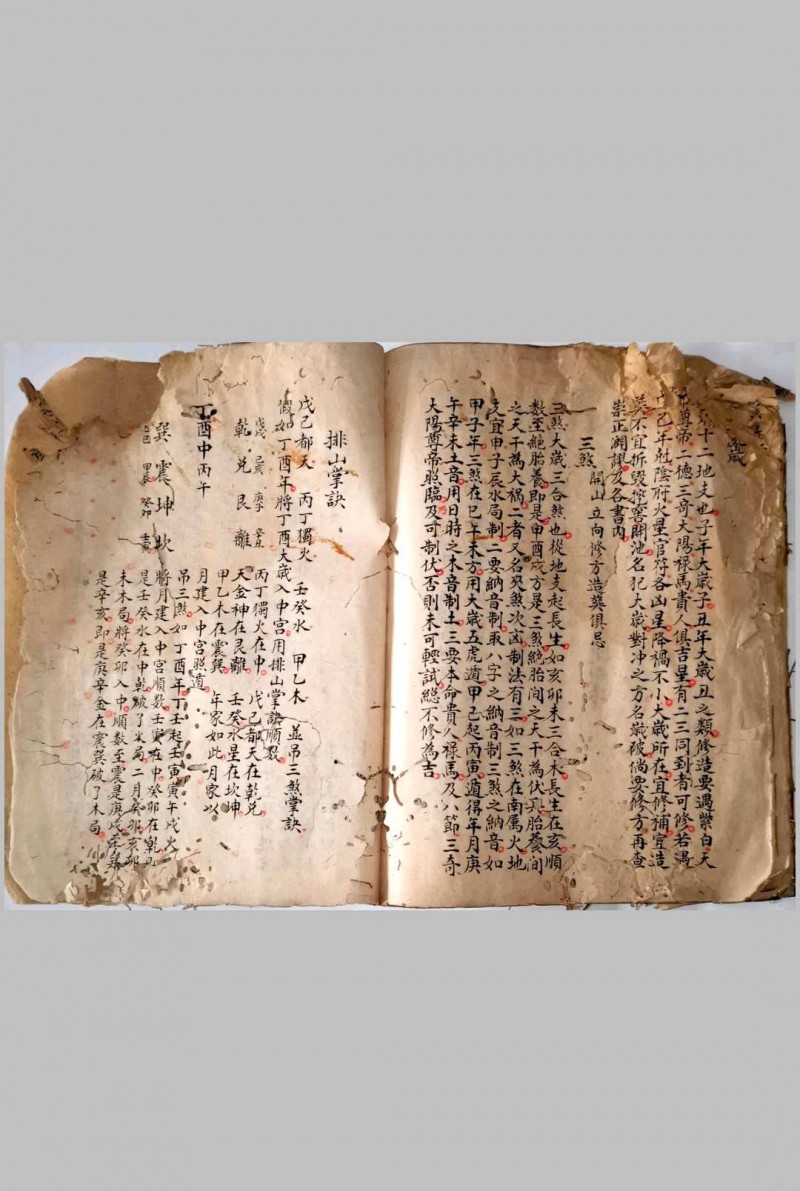 歲
十二地支也子年大歲子丑年大歲丑之類修造要遇紫白天
尊帝二德三奇大陽祿馬貴人俱吉星有二三同到者可修若遇
巳年尅陰府火星官符各凶星降禍不小大歲所在宜修補宜造
葬不宜拆毀挖窖開池名犯大歲對冲之方名歲破倘要修方再查
崇正闢謬及各書內
三煞 開山立向修方造葬俱忌
三煞大歲三合煞也從地支起長生如亥卯未三合木長生在亥順
数至絕胎養即是申酉戌方是三煞絕胎间之天干為伏兵胎養间
之天干為大禍二者又名夾煞次凶制法有三如三煞在南属火地
支宜申子辰水局制二要納音制取八字之納音制三煞之納音如
甲子年三煞在巳午未方用大歲五虎遁甲己起丙寅遁得年月庚
午辛未土音用日時之木音制土三要本命貴人祿馬及八節三奇
大陽尊帝照臨及可制伏否則未可輕試總不修為吉
排山掌訣
戊己都天 丙丁獨火 壬癸水 甲乙木 並吊三煞掌訣
假如丁酉年將丁酉大歲入中宮用排山掌訣順数
乾兌艮離
丁酉中丙午
巽震坤坎
丙丁獨火在中 戊己都天在乾兌
天金神在艮離 壬癸水星在坎坤
甲乙木在震巽 年家如此月家以
月建入中宮照遁
吊三煞如丁酉年丁壬起壬寅寅午戌火
將月建入中宮順数壬寅在中癸卯在乾
是壬癸水在中乾破了火局二月癸卯亥卯
未木局將癸卯入中順数至震是庚戌
是辛亥即是庚辛金在震巽破了木局